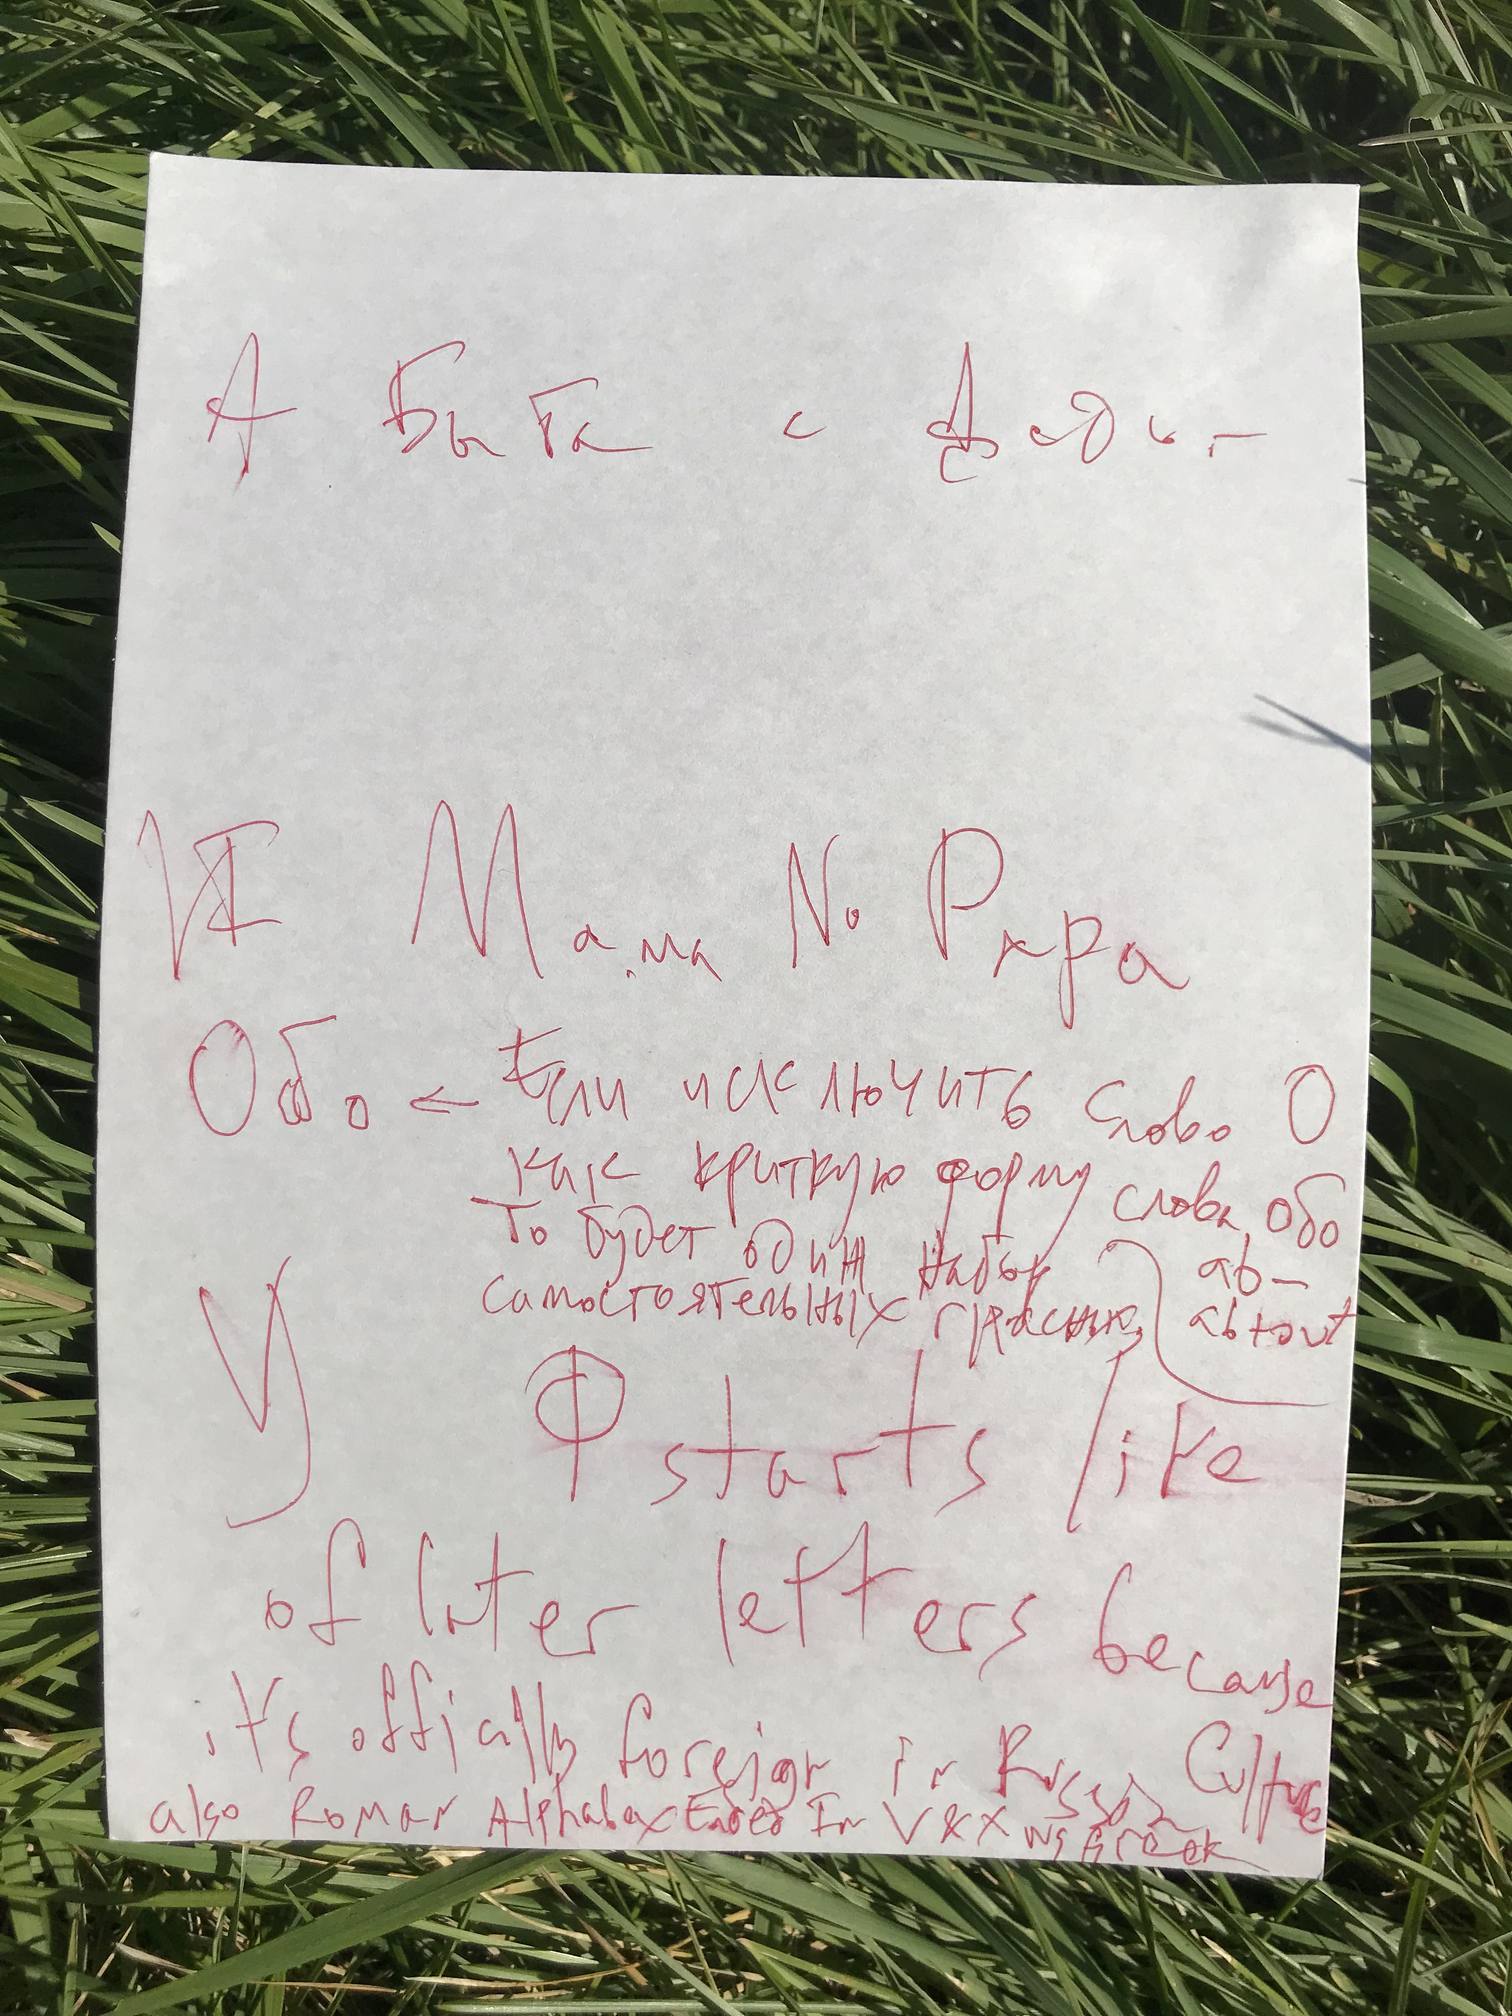 А Бата с
Мама No Papa
Обо ← Если исключить слово О
как криткую форму слова обо
то будет один набор ab-
самостоятельных about
У Ф starts like
of later letters because
it's offically foreign in Russian Culture
also Roman Alphabex Ended In V & X was Greek